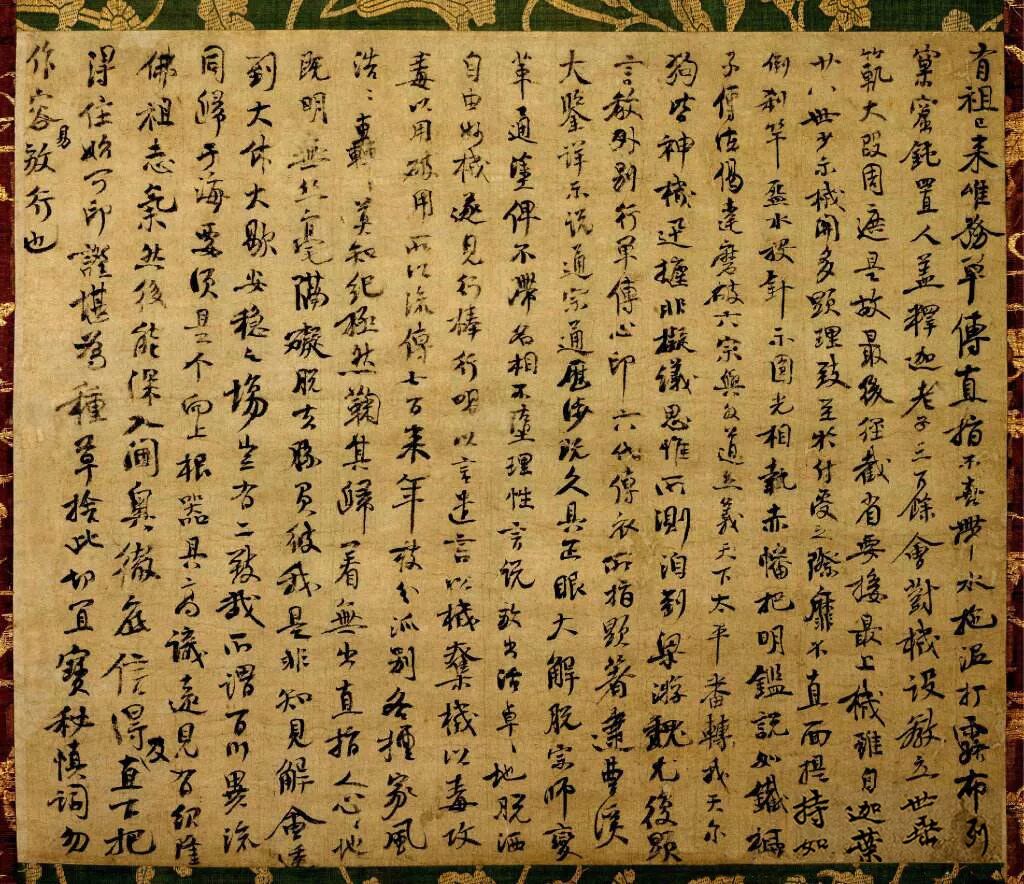 有祖已来唯務單傳直指不喜帶水拖泥打露布列
窠窟鈍置人蓋釋迦老子三百餘會對機設教立世垂
範大段周遮是故最後徑截省要接最上機雖自迦葉
廿八世少示機關多顯理致至於付受之際靡不直面提持如
倒刹竿盋水投針示圓光相執赤幡把明鑑説如鐵橛
子傳法偈達磨破六宗與外道立義天下太平番轉我天尔
狗皆神機迅捷非擬議思惟所測洎到梁游魏尤復顯
言教外別行單傳心印六代傳衣所指顯著逮曹溪
大鑒詳示説通宗通歷涉既久具正眼大解脱宗師變
革通塗俾不滯名相不墮理性言説放出活卓〻地脱洒
自由妙機遂見行棒行喝以言遣言以機奪機以毒攻
毒以用破用所以流傳七百来年枝分派別各擅家風
浩〻轟〻莫知紀極然鞠其歸著無出直指人心〻地
既明無絲毫隔礙脱去勝負彼我是非知見解會透
到大休大歇安穩之場豈有二致哉所謂百川異流
同歸于海要須是个向上根器具高識遠見有紹隆
佛祖志氣然後能深入閫奧徹底信得及直下把
得住始可印證堪為種草捨此切宜寶秘慎詞勿
作容易放行也